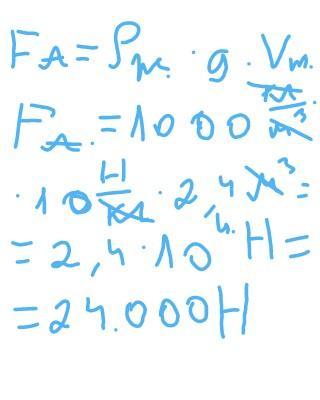 F_A = ρ_ж. · g · V_т.
F_A. = 1000 кг/м³ ·
· 10 Н/кг · 2,4 м³ =
= 2,4 · 10⁴ Н =
= 24.000 Н